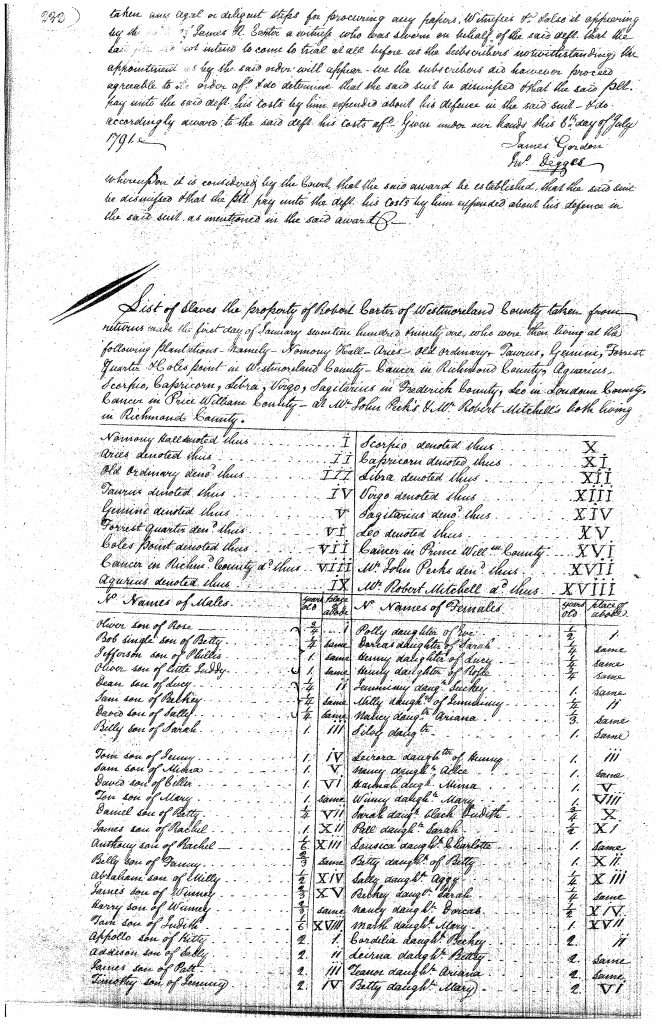 232)
taken any legal or deligent steps for procuring any papers, Witnesses &c. also it appearing
by the of James R Carter a witness who was sworn on behalf of the said deft. that the
said did not intend to come to trial at all before us the subscribers notwithstanding the
appointment as by the said order will appear - we the subscribers did however proceed
agreeable to order affd. & do determine that the said suit be dismissed & that the said Pltf.
pay unto the said deft. his costs by him expended about his defence in the said suit - & do
accordingly award to the said deft. his costs affd. Given under our hands this 6th. day of July
1791.
James Gordon
Jno. Degges
whereupon it is considered by the Court, that the said award be established, that the said suit
be dismissed & that the Pltf. pay unto the deft. his costs by him expended about his defence in
the said suit as mentioned in the said award
List of slaves the property of Robert Carter of Westmoreland County taken from
returns made the first day of January seventeen hundred & ninety one, who were then living at the
following plantations - namely - Nomony Hall - Aries - Old Ordinary - Taurus, Gemini, Forrest
Quarter & Coles point in Westmoreland County - Cancer in Richmond County, Aquarius -
Scorpio, Capricorn, Libra, Virgo, Sagitarius in Frederick County, Leo in Loudoun County,
Cancer in Prince William County - at Mr. John Peck's & Mr. Robert Mitchell's both living
in Richmond County.
Nomony Hall denoted thus I Scorpio denoted thus X
Aries denoted thus II Capricorn denoted thus XI
Old Ordinary deno.d thus III Libra denoted thus XII
Taurus denoted thus IV Virgo denoted thus XIII
Gemini denoted thus V Sagitarius deno.d thus XIV
Forrest Quarter den.d thus VI Leo denoted thus XV
Coles point denoted thus VII Cancer in Prince Will.m County XVI
Cancer in Richm.d County d.o thus VIII Mr. John Pecks den.d thus XVII
Aquarius denoted thus IX Mr. Robert Mitchell d.o thus XVIII
No. Names of Males. years old place of abode No. Names of Females. years old place of abode
Oliver son of Rose 3/4 I Polly daughter of Eve 1/2 1.
Bob single son of Betty 1/4 same Dorcas daughter of Sarah 1/4 same
Jefferson son of Phillis 1. same Henny daughter of Lucy 1/4 same
Oliver son of Little Juddy 1. same Henny daughter of Rose 3/4 same
Dean son of Lucy 1/4 II Jemimy daug.r Suckey 1. same
Sam son of Beckey 1/4 same Milly daugh.r of Jemimy 1/4 II
David son of Sally 1/4 same Nancy daug.r Ariana 1/3 same
Billy son of Sarah 1. III daug.r 1. same
Tom son of Jenny 1. IV daugh.ter of Henny 1. III
Sam son of Mima 1. V Nancy daugh.r Alice 1. same
David son of Cilla 1. VI Hannah daugh.r Mima 1. V
Tom son of Mary 1. same Winny daugh.r Mary 1. VIII
Daniel son of Betty 1/4 VII Sarah daug.r black Judith 3/4 X
James son of Rachel 1. XII Patt daugh.r Sarah 1/4 XI
Anthony son of Rachel 1/6 XIII daugh.r Charlotte 1. same
Billy son of Fanny 2/3 same Betty daugh.r of Betty 1. XII
Abraham son of Milly 1/2 XIV Sally daugh.r Aggy 1/4 XIII
James son of Winney 2/3 XV Beckey daugh.r Sarah 1/4 same
Harry son of Winney 2/3 same Nancy daug.r Dorcas 1/2 XIV
Tom son of Judith 1/6 XVIII daugh.r Mary 1. XVII
Appollo son of Kitty 2 1. Cordilia daugh.r Beckey 2. II
Addison son of Sally 2 II daugh.r Betty 2. same
James son of Patt 2 III daugh.r Ariana 2. same
Timothy son of Jemimy 2. IV Betty daugh.r Mary 2. VI